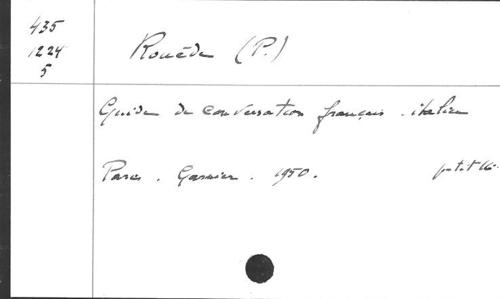 435
1224
5
Rouède (P.)
Guide de conversation français - italien
Paris. Garnier. 1950. petit 16°